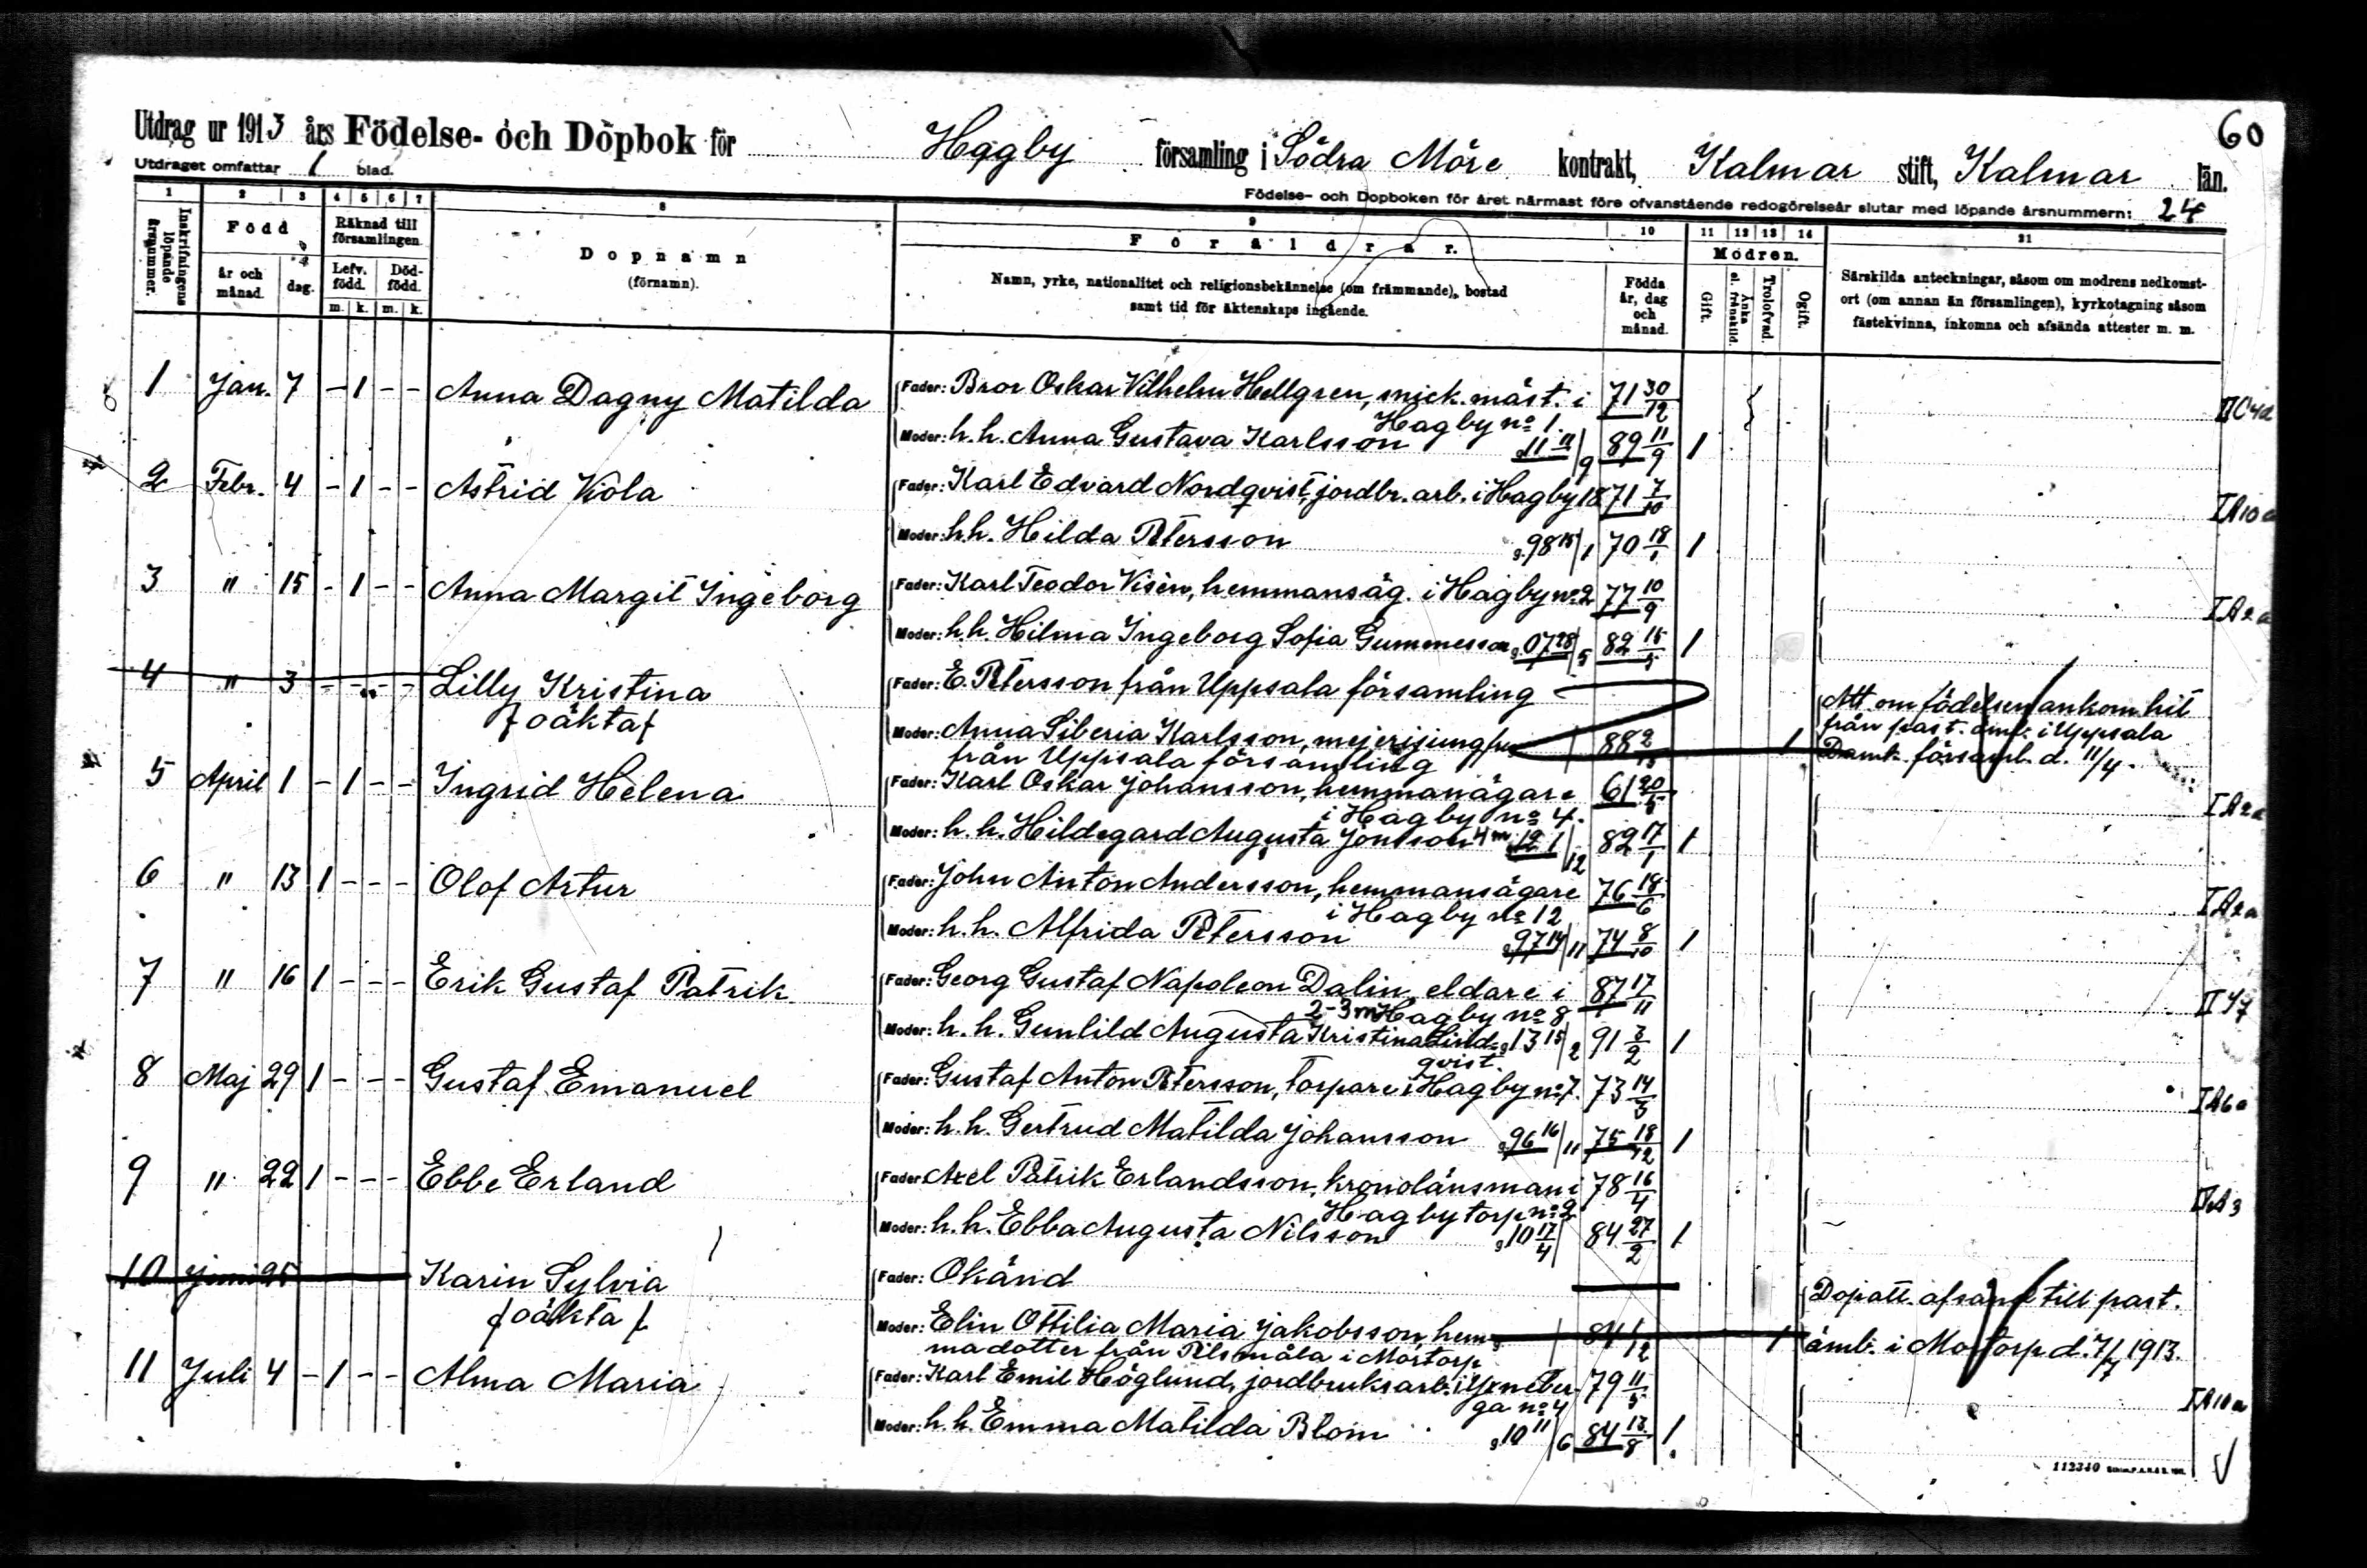 60
Utdrag ur 1913 års Födelse- och Dopbok för Hagby församling i Södra Möre kontrakt, Kalmar stift, Kalmar län.
Utdraget omfattar 1 blad.
Födelse- och Dopboken för året närmast före ofvanstående redogörelseår slutar med löpande årsnummern: 24
1 2 3 4 5 6 7 8 9 10 11 12 13 14 21
Inskrifningens löpande årsnummer.
Född
år och månad.
dag.
Räknad till församlingen
Lefv. född.
Död-född.
m. k. m. k.
Dopnamn
(förnamn).
Föräldrar.
Namn, yrke, nationalitet och religionsbekännelse (om främmande), bostad
samt tid för äktenskaps ingående.
Födda år, dag och månad.
Modren.
Gift.
Änka el. frånskild.
Trolofvad.
Ogift.
Särskilda anteckningar, såsom om modrens nedkomst-
ort (om annan än församlingen), kyrkotagning såsom
fästekvinna, inkomna och afsända attester m. m.
1 Jan. 7 - 1 - - Anna Dagny Matilda Fader: Bror Oskar Vilhelm Hellgren, snick. mäst. i 71 30/12 II C4d
Hagby no 1.
Moder: h. h. Anna Gustava Karlsson g. 11 11/9 89 11/9 1
2 Febr. 4 - 1 - - Astrid Viola Fader: Karl Edvard Nordqvist, jordbr. arb. i Hagby 18 71 7/10 I A10a
Moder: h. h. Hilda Petersson g. 98 15/1 70 18/1 1
3 " 15 - 1 - - Anna Margit Ingeborg Fader: Karl Teodor Visèn, hemmansäg. i Hagby no 2 77 10/9 I A2a
Moder: h. h. Hilma Ingeborg Sofia Gummesson g. 07 28/5 82 15/5 1
4 " 3 - - - - Lilly Kristina Fader: E. Petersson från Uppsala församling
foäktaf
Att. om födelsen ankom hit
från past. emb. i Uppsala
Moder: Anna Siberia Karlsson, mejerijungfru 88 2/ 1
från Uppsala församling
Domk. församl. d. 11/4.
5 April 1 - 1 - - Ingrid Helena Fader: Karl Oskar Johansson, hemmanägare 61 20/5 I A2a
i Hagby no 4.
Moder: h. h. Hildegard Augusta Jonsson 4 m g. 12 1/12 82 17/1 1
6 " 13 1 - - - Olof Artur Fader: John Anton Andersson, hemmansägare 76 18/6 I A2a
i Hagby no 12
Moder: h. h. Alfrida Petersson g. 97 14/11 74 8/10 1
7 " 16 1 - - - Erik Gustaf Patrik Fader: Georg Gustaf Napoleon Dalin, eldare i 87 17/11 II Y7
2-3 m Hagby no 8
Moder: h. h. Gunhild Augusta Kristina Lind- g. 13 15/2 91 3/2 1
qvist.
8 Maj 29 1 - - - Gustaf Emanuel Fader: Gustaf Anton Petersson, torpare i Hagby no 7. 73 14/3 I A6a
Moder: h. h. Gertrud Matilda Johansson g. 96 16/11 75 18/12 1
9 " 22 1 - - - Ebbe Erland Fader: Axel Patrik Erlandsson, kronolänsman i 78 16/4 IV A3
Hagbytorp no 2
Moder: h. h. Ebba Augusta Nilsson g. 10 17/4 84 27/2 1
10 Juni 25 Karin Sylvia Fader: Okänd
foäktaf
Dopatt. afsänd till past.
Moder: Elin Ottilia Maria Jakobsson, hem- 84 1/12 1
madotter från Pilsmåla i Mortorp
ämb. i Mortorp d. 7/7 1913.
11 Juli 4 - 1 - - Alma Maria Fader: Karl Emil Höglund, jordbruksarb. i Ysneber- 79 11/5 I A10a
ga no 4
Moder: h. h. Emma Matilda Blom g. 10 11/6 84 13/8 1.
112340